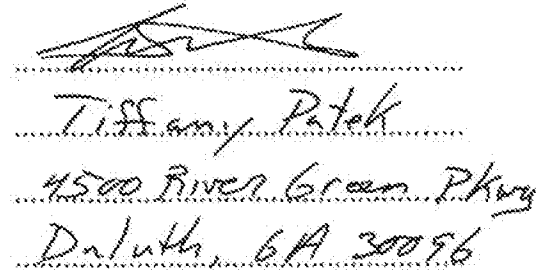 Tiffany Patek
4500 River Green Pkwy
Duluth, GA 30096